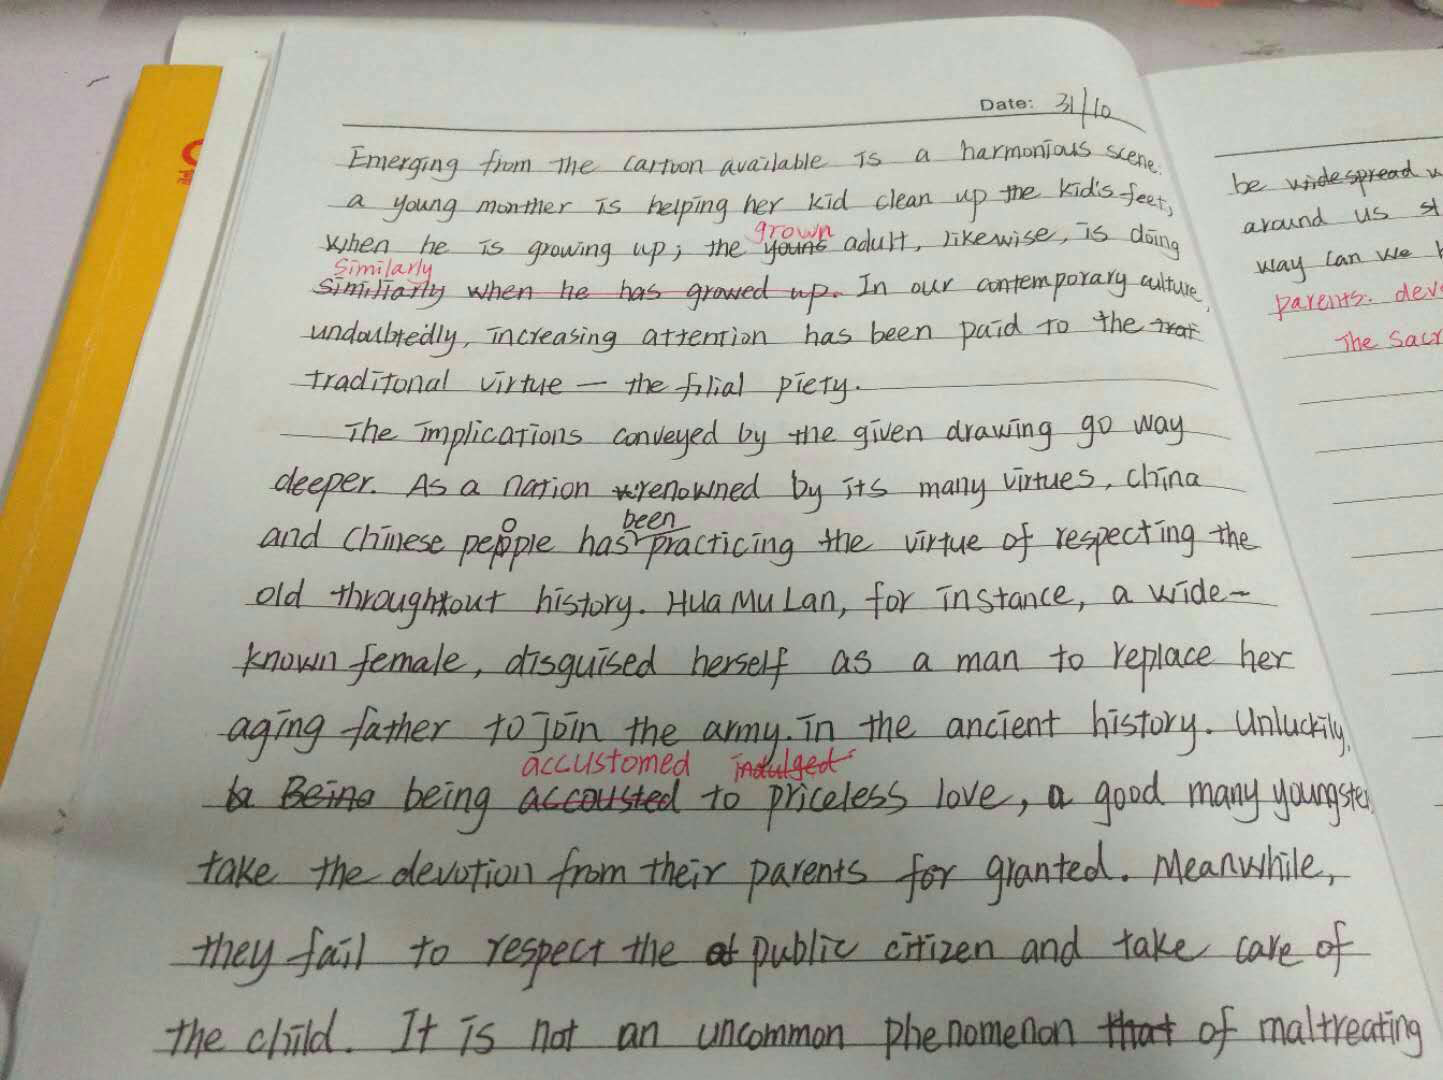 Date: 31/10
Emerging from the cartoon available is a harmonious scene.
a young monther is helping her kid clean up the kid's feet,
grown
when he is growing up; the young adult, likewise, is doing
Similarly
similiarly when he has growed up. In our contemporary culture,
undoubtedly, increasing attention has been paid to the trat
traditonal virtue — the filial piety.
The implications conveyed by the given drawing go way
deeper. As a nation renowned by its many virtues, China
been
and Chinese people has practicing the virtue of respecting the
old throughtout history. Hua Mu Lan, for instance, a wide-
known female, disguised herself as a man to replace her
aging father to join the army. in the ancient history. Unluckily,
accustomed indulged
b Being being accousted to priceless love, a good many youngste
take the devotion from their parents for granted. Meanwhile,
they fail to respect the of public citizen and take care of
the child. It is not an uncommon phenomenon that of maltreating
be widespread w
around us st
way can we
parents. dev
The Sacr